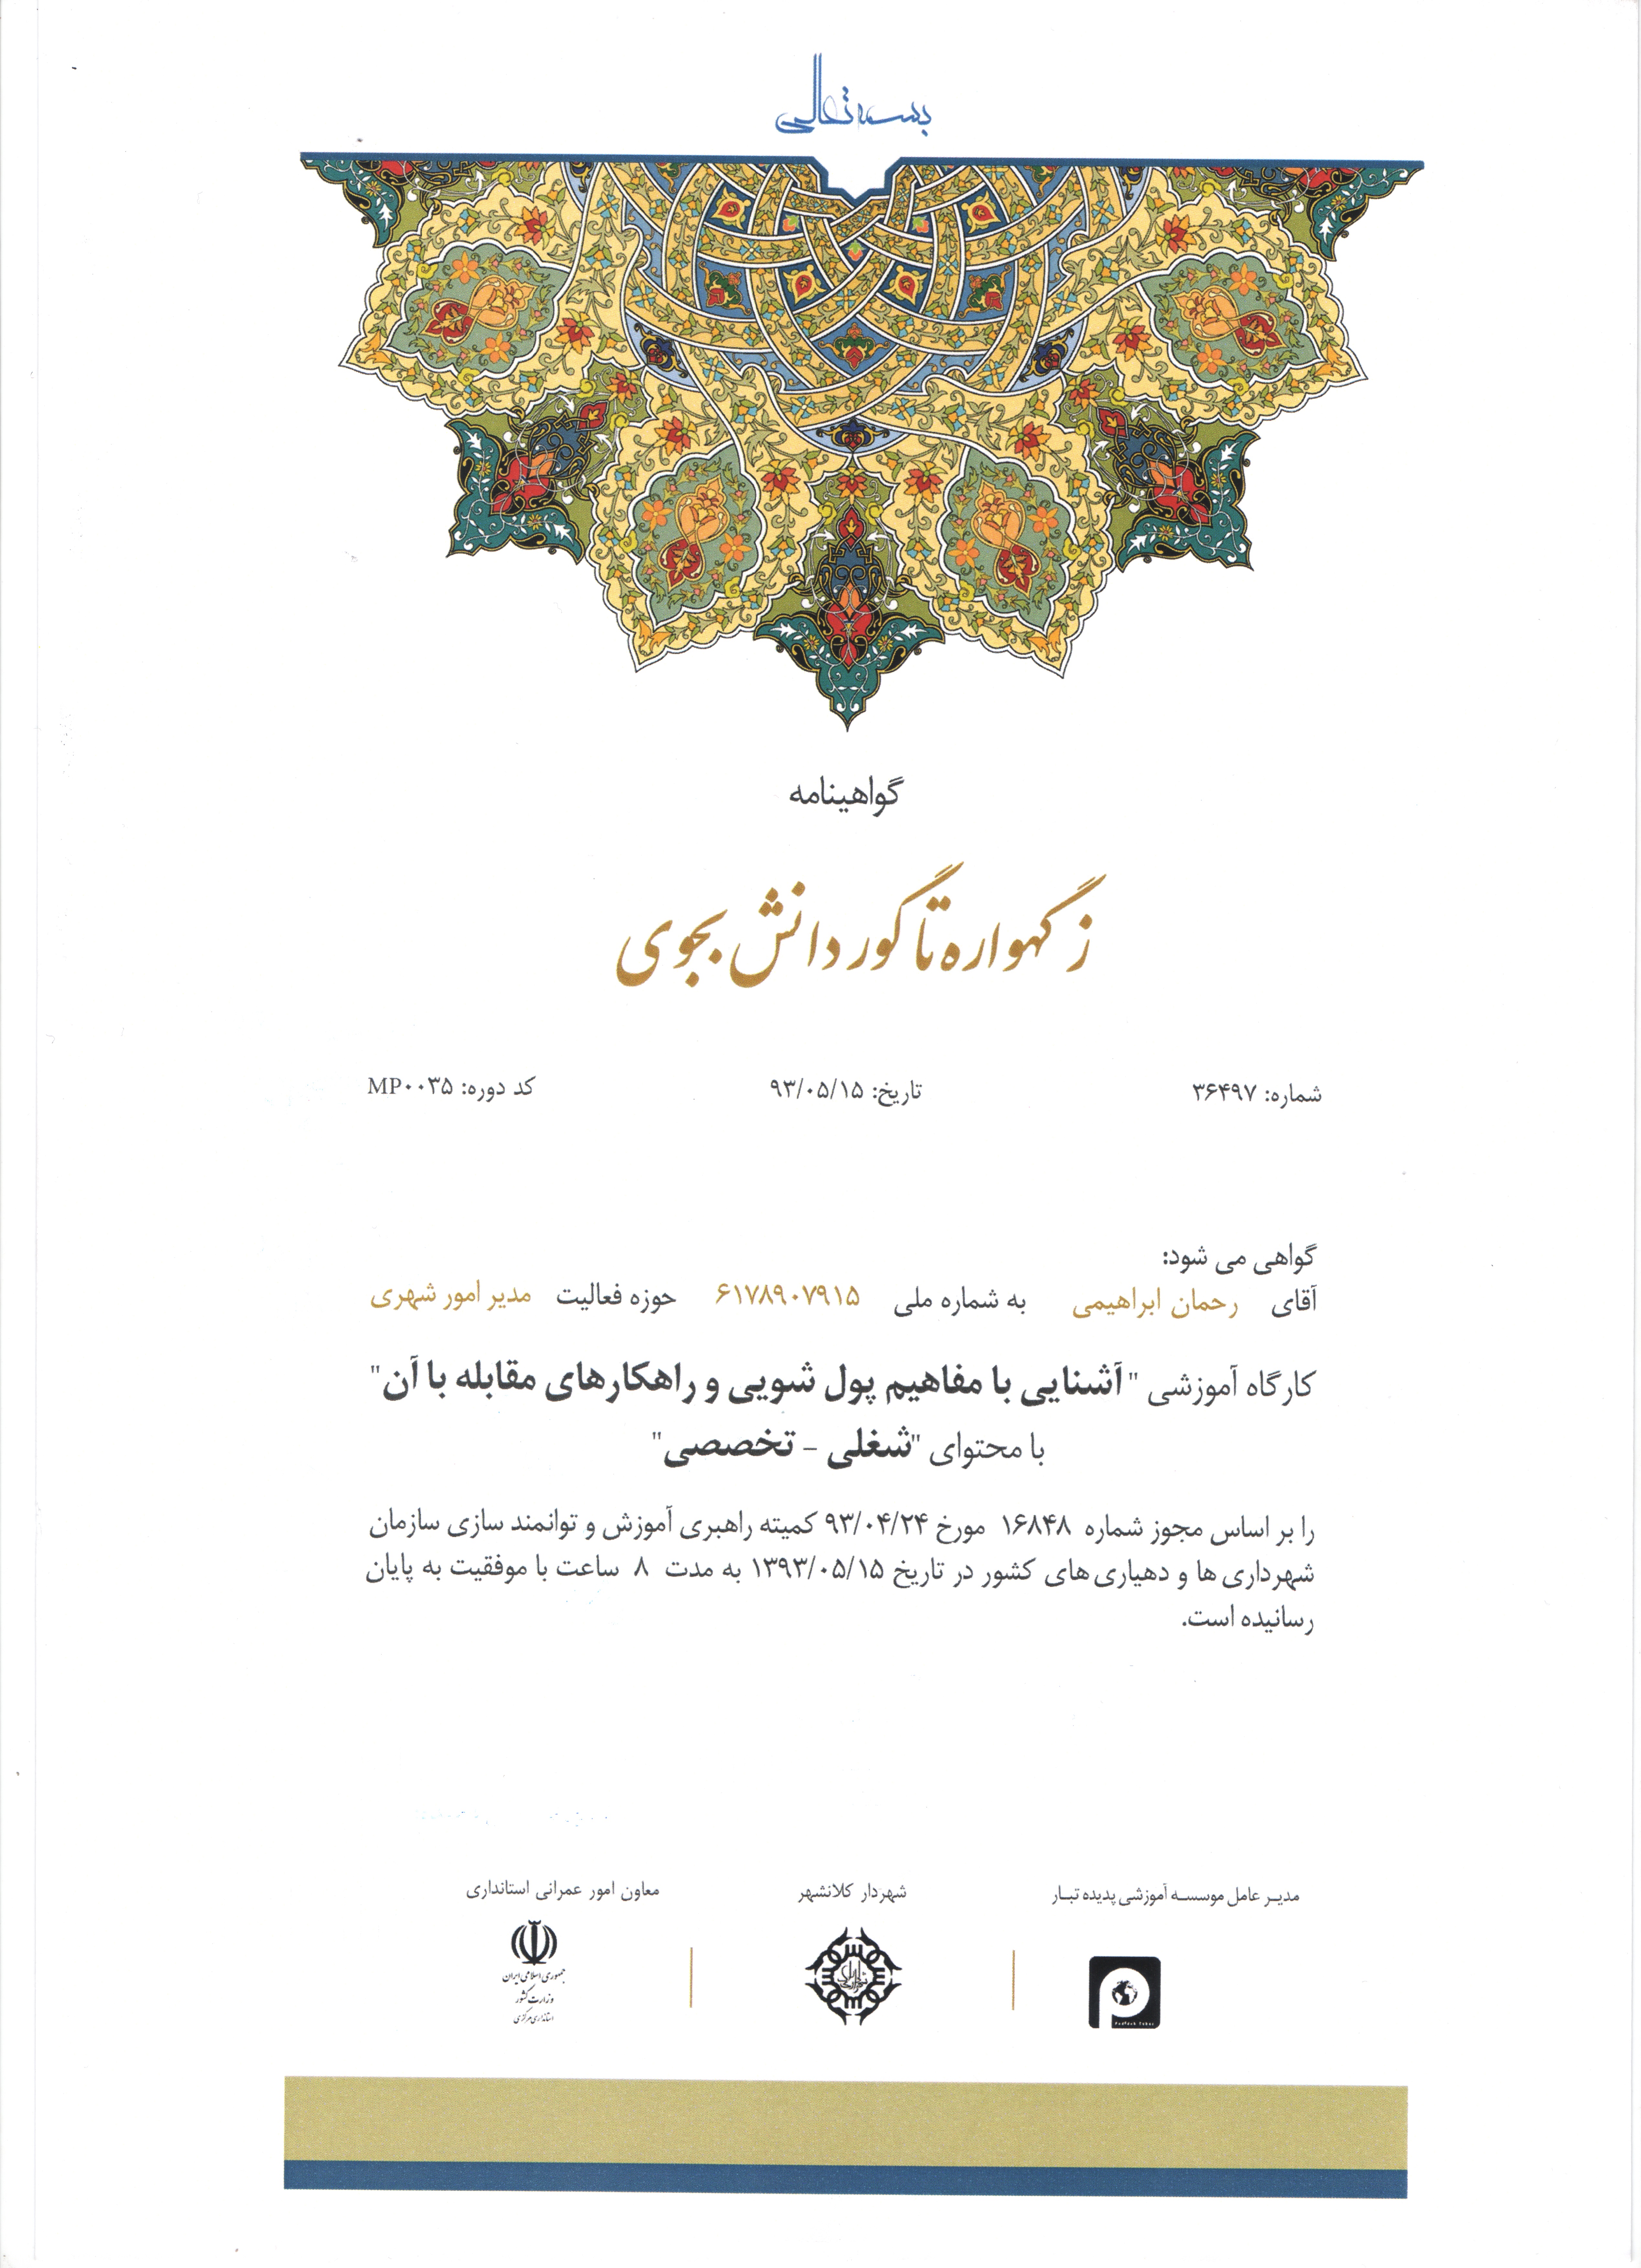 بسمه تعالی
گواهینامه
ز گهواره تا گور دانش بجوی
شماره: ۳۶۴۹۷ تاریخ: ۹۳/۰۵/۱۵ کد دوره: MP۰۰۳۵
گواهی می شود:
آقای رحمان ابراهیمی به شماره ملی ۶۱۷۸۹۰۷۹۱۵ حوزه فعالیت مدیر امور شهری
کارگاه آموزشی "آشنایی با مفاهیم پول شویی و راهکارهای مقابله با آن"
با محتوای "شغلی - تخصصی"
را بر اساس مجوز شماره ۱۶۸۴۸ مورخ ۹۳/۰۴/۲۴ کمیته راهبری آموزش و توانمند سازی سازمان
شهرداری ها و دهیاری های کشور در تاریخ ۱۳۹۳/۰۵/۱۵ به مدت ۸ ساعت با موفقیت به پایان
رسانیده است.
مدیر عامل موسسه آموزشی پدیده تبار شهردار کلانشهر معاون امور عمرانی استانداری
جمهوری اسلامی ایران
وزارت کشور
استانداری مرکزی